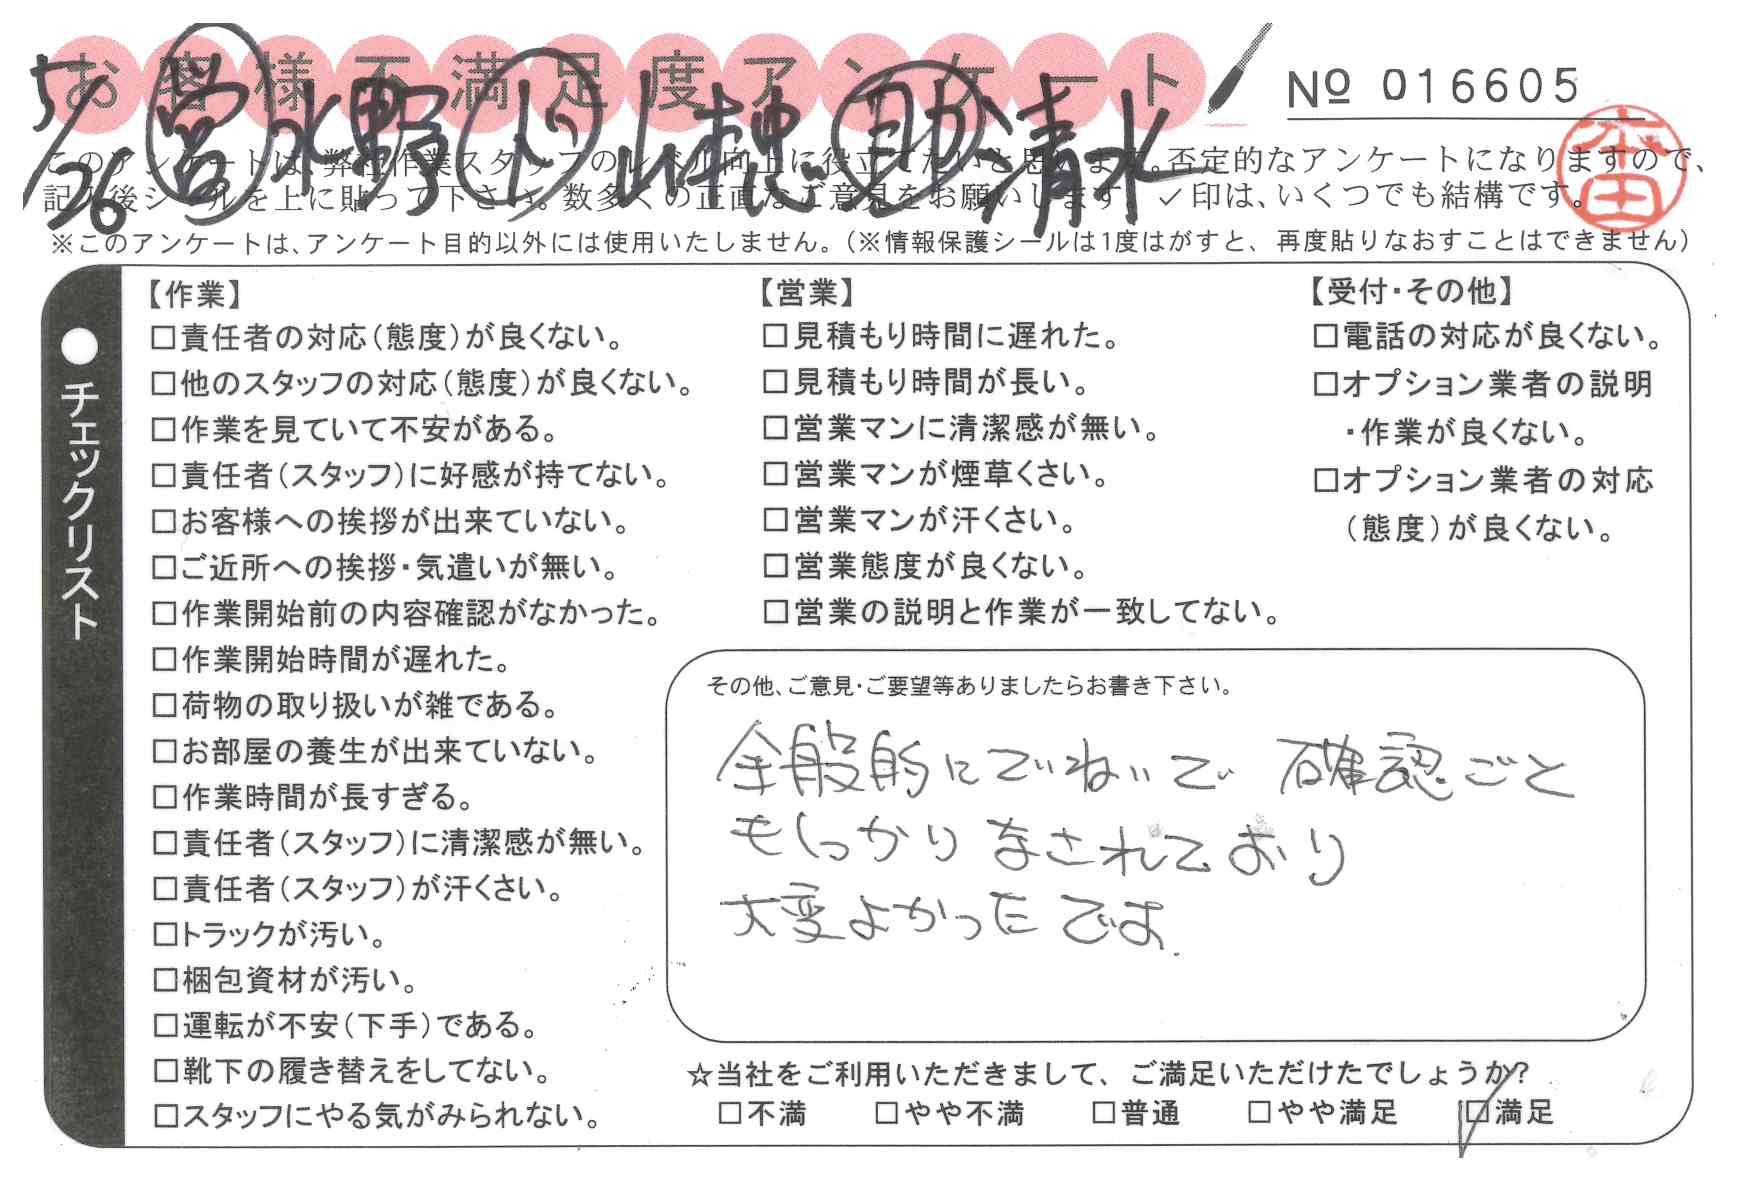 お客様不満足度アンケート
№ 016605
5/26 営 水野 ト 山本 助 清水
このアンケートは、弊社作業スタッフのレベル向上に役立てたいと思います。否定的なアンケートになりますので、
記入後シールを上に貼って下さい。数多くの正直なご意見をお願いします。✓印は、いくつでも結構です。
※このアンケートは、アンケート目的以外には使用いたしません。（※情報保護シールは1度はがすと、再度貼りなおすことはできません）
●チェックリスト
【作業】
□責任者の対応（態度）が良くない。
□他のスタッフの対応（態度）が良くない。
□作業を見ていて不安がある。
□責任者（スタッフ）に好感が持てない。
□お客様への挨拶が出来ていない。
□ご近所への挨拶・気遣いが無い。
□作業開始前の内容確認がなかった。
□作業開始時間が遅れた。
□荷物の取り扱いが雑である。
□お部屋の養生が出来ていない。
□作業時間が長すぎる。
□責任者（スタッフ）に清潔感が無い。
□責任者（スタッフ）が汗くさい。
□トラックが汚い。
□梱包資材が汚い。
□運転が不安（下手）である。
□靴下の履き替えをしてない。
□スタッフにやる気がみられない。
【営業】
□見積もり時間に遅れた。
□見積もり時間が長い。
□営業マンに清潔感が無い。
□営業マンが煙草くさい。
□営業マンが汗くさい。
□営業態度が良くない。
□営業の説明と作業が一致してない。
【受付・その他】
□電話の対応が良くない。
□オプション業者の説明
・作業が良くない。
□オプション業者の対応
（態度）が良くない。
その他、ご意見・ご要望等ありましたらお書き下さい。
全般的にていねいで 確認ごと
もしっかりなされており
大変よかったです.
☆当社をご利用いただきまして、ご満足いただけたでしょうか？
□不満 □やや不満 □普通 □やや満足 ☑満足